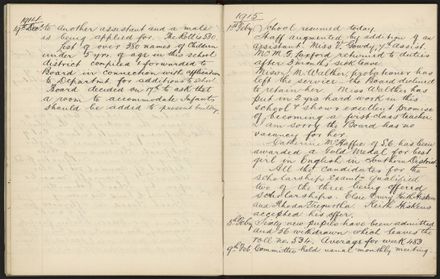 1914
17th Decr to another assistant and a male
is being applied for. The Roll is 530
list of over 380 names of Children
under 5 yrs of age in this school
district compiled & forwarded to
Board in connection with application
to Department for additions to school
Board decided on 17th to ask that
a room to accommodate Infants
should be added to present building
1915
1st Feby School resumed today
Staff augmented by addition of an
assistant. Miss E. Gowdy, 7th assist.
Mr M. G. resumed to duties
after 3 months sick leave
Miss M. Walker, probationer has
left the service. The Board declined
to retain her. Miss Walker has
put in 2 yrs hard work in this
school & shows excellent promise
of becoming a first class teacher
I am sorry the Board has no
vacancy for her.
Catherine McHaffie of S6 has been
awarded a Gold Medal for best
girl in English in Southern District
All the candidates for the
scholarship Exam qualified
two of the three being offered
scholarships. Elsie Ewing Keith Hoskins
and Rhoda Tregurtha. Keith Hoskins
accepted his offer.
5th Feby Sixty new pupils have been admitted
and 56 withdrawn which leaves the
roll no. 534. Average for week 483
9th Feb Committee held usual monthly meeting